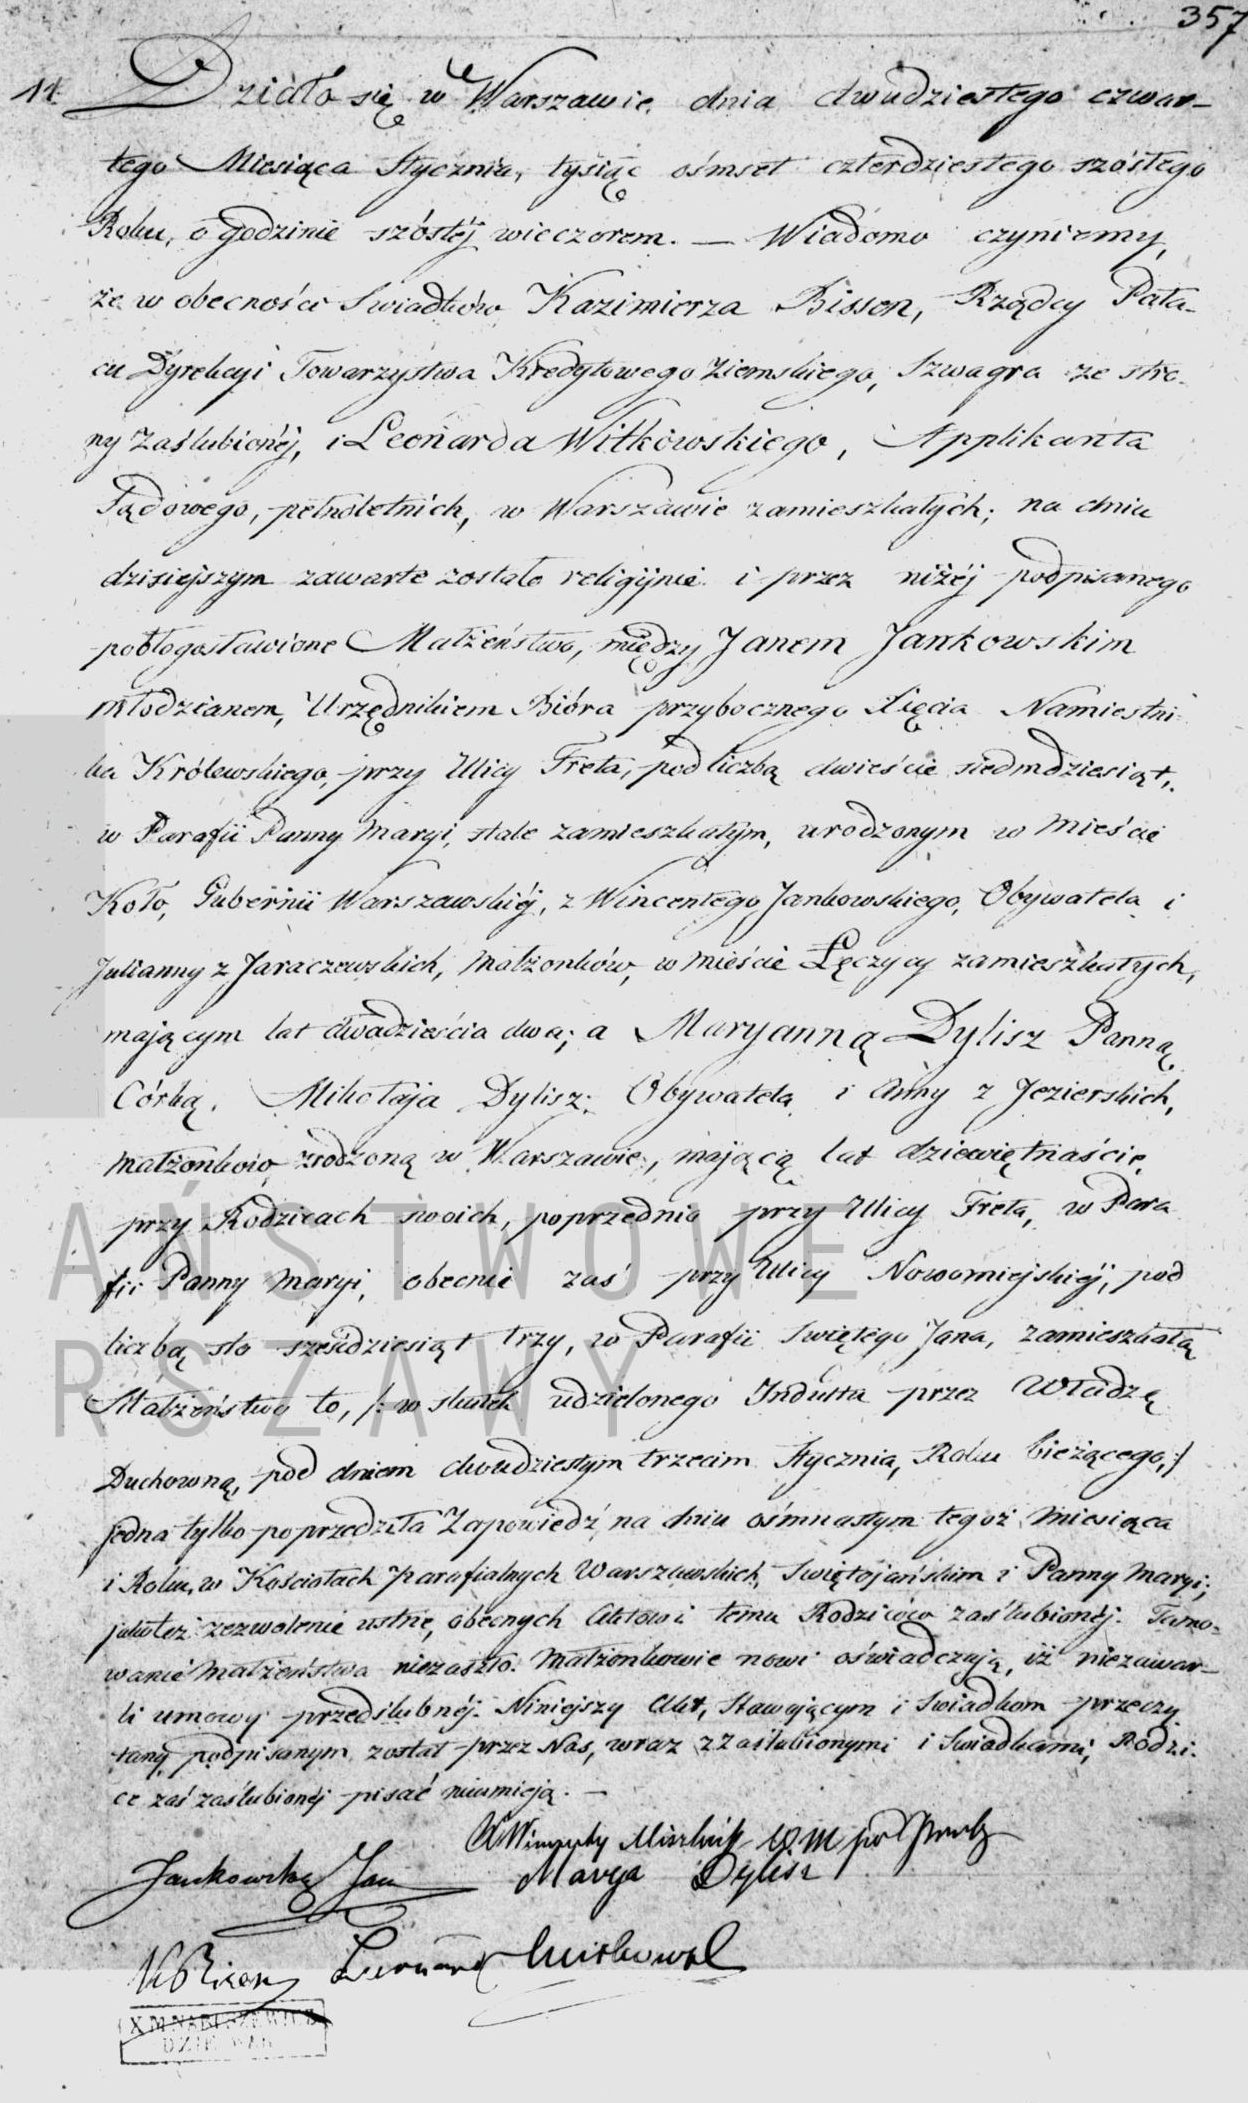 357
14 Działo się w Warszawie, dnia dwudziestego czwar-
tego Miesiąca Stycznia, tysiąc ośmset czterdziestego szóstego
Roku, o godzinie szóstéj wieczorem. — Wiadomo czyniemy,
że w obecności Swiadków Kazimierza Bisson, Rządcy Pała-
cu Dyrekcyi Towarzystwa Kredytowego Ziemskiego, Szwagra ze stro-
ny Zaślubionéj, i Leonarda Witkowskiego, Applikanta
Sądowego, pełnoletnich, w Warszawie zamieszkałych; na dniu
dzisiejszym zawarte zostało religijnie i przez niżéj podpisanego
pobłogosławione Małżeństwo, między Janem Jankowskim
młodzianem, Urzędnikiem Bióra przybocznego Xięcia Namiestni-
ka Królewskiego, przy Ulicy Freta, pod liczbą dwieście siedmdziesiąt,
w Parafii Panny Maryi, stale zamieszkałym, urodzonym w Mieście
Koło, Gubernii Warszawskiéj, z Wincentego Jankowskiego, Obywatela i
Julianny z Jaraczewskich, małżonków, w mieście Łęczycy zamieszkałych,
mającym lat dwadzieścia dwa; a Maryanną Dylisz Panną,
Córką, Mikołaja Dylisz, Obywatela i Anny z Jezierskich,
małżonków, zrodzoną w Warszawie, mającą lat dziewiętnaście,
przy Rodzicach swoich, poprzednio przy Ulicy Freta, w Para
fii Panny Maryi, obecnie zaś przy Ulicy Nowomiejskiéj, pod
liczbą sto sześćdziesiąt trzy, w Parafii Swiętego Jana, zamieszkałą
Małżeństwo to, /: w skutek udzielonego Indultu przez Władzę
Duchowną, pod dniem dwudziestym trzecim Stycznia, Roku bieżącego, :/
jedna tylko poprzedziła Zapowiedź na dniu ośmnastym tegoż miesiąca
i Roku, w Kościołach Parafialnych Warszawskich, Swiętojańskim i Panny Maryi;
jakoteż zezwolenie ustne, obecnych Aktowi temu Rodziców zaślubionéj. Tamo-
wanie Małżeństwa niezaszło. Małżonkowie nowi oświadczają, iż niezawar-
li umowy przedślubnéj. Niniejszy Akt, Stawającym i Swiadkom przeczy
tany podpisanym został przez Nas, wraz z Zaślubionymi i Swiadkami, Rodzi-
ce zaś zaślubionéj pisać nieumieją. —
Jankowski Jan
Marya Dylisz
Leonard Witkowski
AŃSTWOWE
RSZAWY